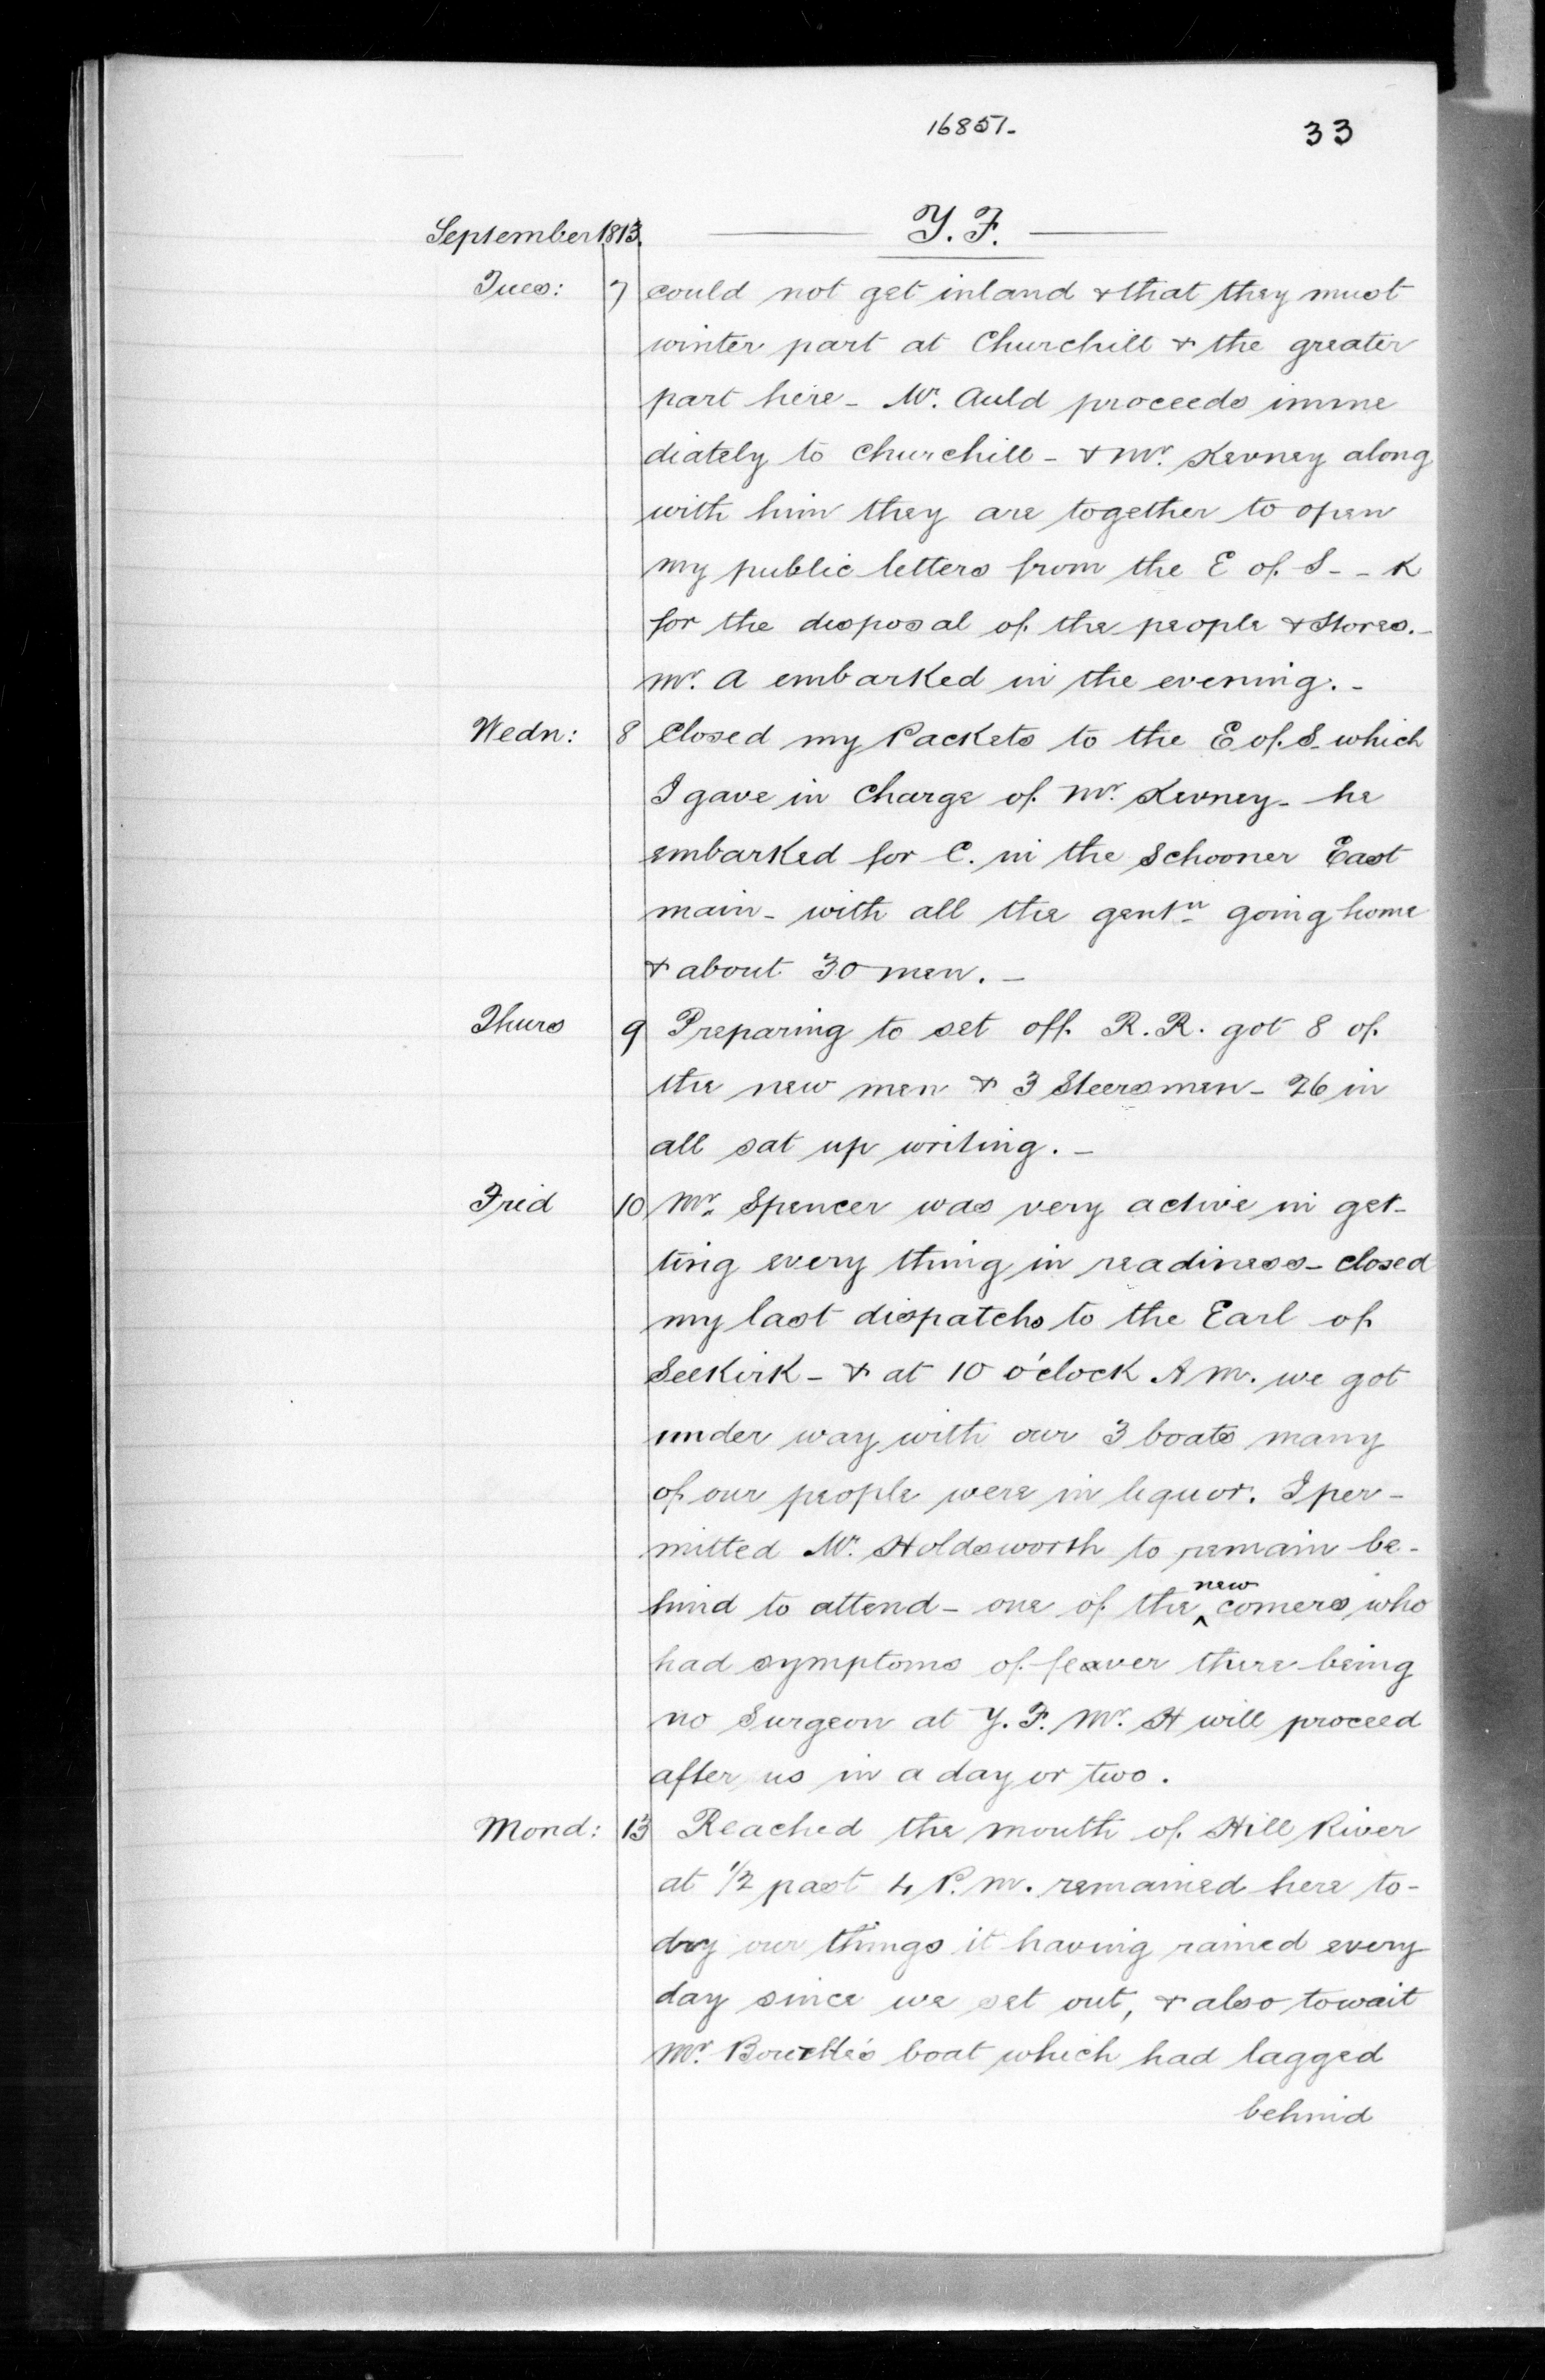 16851-
33
September 1813. Y. F.
Tues: 7 could not get inland & that they must
winter part at Churchill & the greater
part here - Mr. Auld proceeds imme
diately to Churchill - & Mr. Kevney along
with him they are together to open
my public letters from the E of S - - K
for the disposal of the people & Stores. -
Mr. A embarked in the evening. -
Wedn: 8 Closed my Packets to the E of S - which
I gave in Charge of Mr. Kevney - he
embarked for C. in the Schooner East
main - with all the gentn going home
& about 30 men. -
Thurs 9 Preparing to set off R. R. got 8 of
the new men & 3 Steersmen - 26 in
all sat up writing. -
Frid 10 Mr. Spencer was very active in get-
ting every thing in readiness - closed
my last dispatchs to the Earl of
Selkirk - & at 10 o'clock A M. we got
under way with our 3 boats many
of our people were in liquor. I per-
mitted Mr. Holdsworth to remain be-
hind to attend - one of the new comers who
had symptoms of feaver there being
no Surgeon at Y. F. Mr. H will proceed
after us in a day or two.
Mond: 13 Reached the mouth of Hill River
at 1/2 past 4 P. M. remained here to-
dry our things it having rained every
day since we set out, & also to wait
Mr. Bourke's boat which had lagged
behind